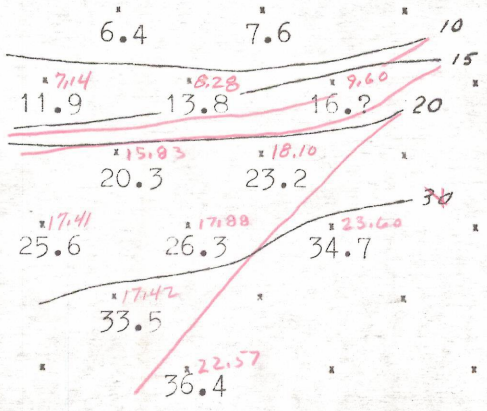 6.4 7.6 10
7.14 8.28 9.60 15
11.9 13.8 16.? 20
15.83 18.10
20.3 23.2
30
17.41 17.88 23.60
25.6 26.3 34.7
17.42
33.5
22.57
36.4